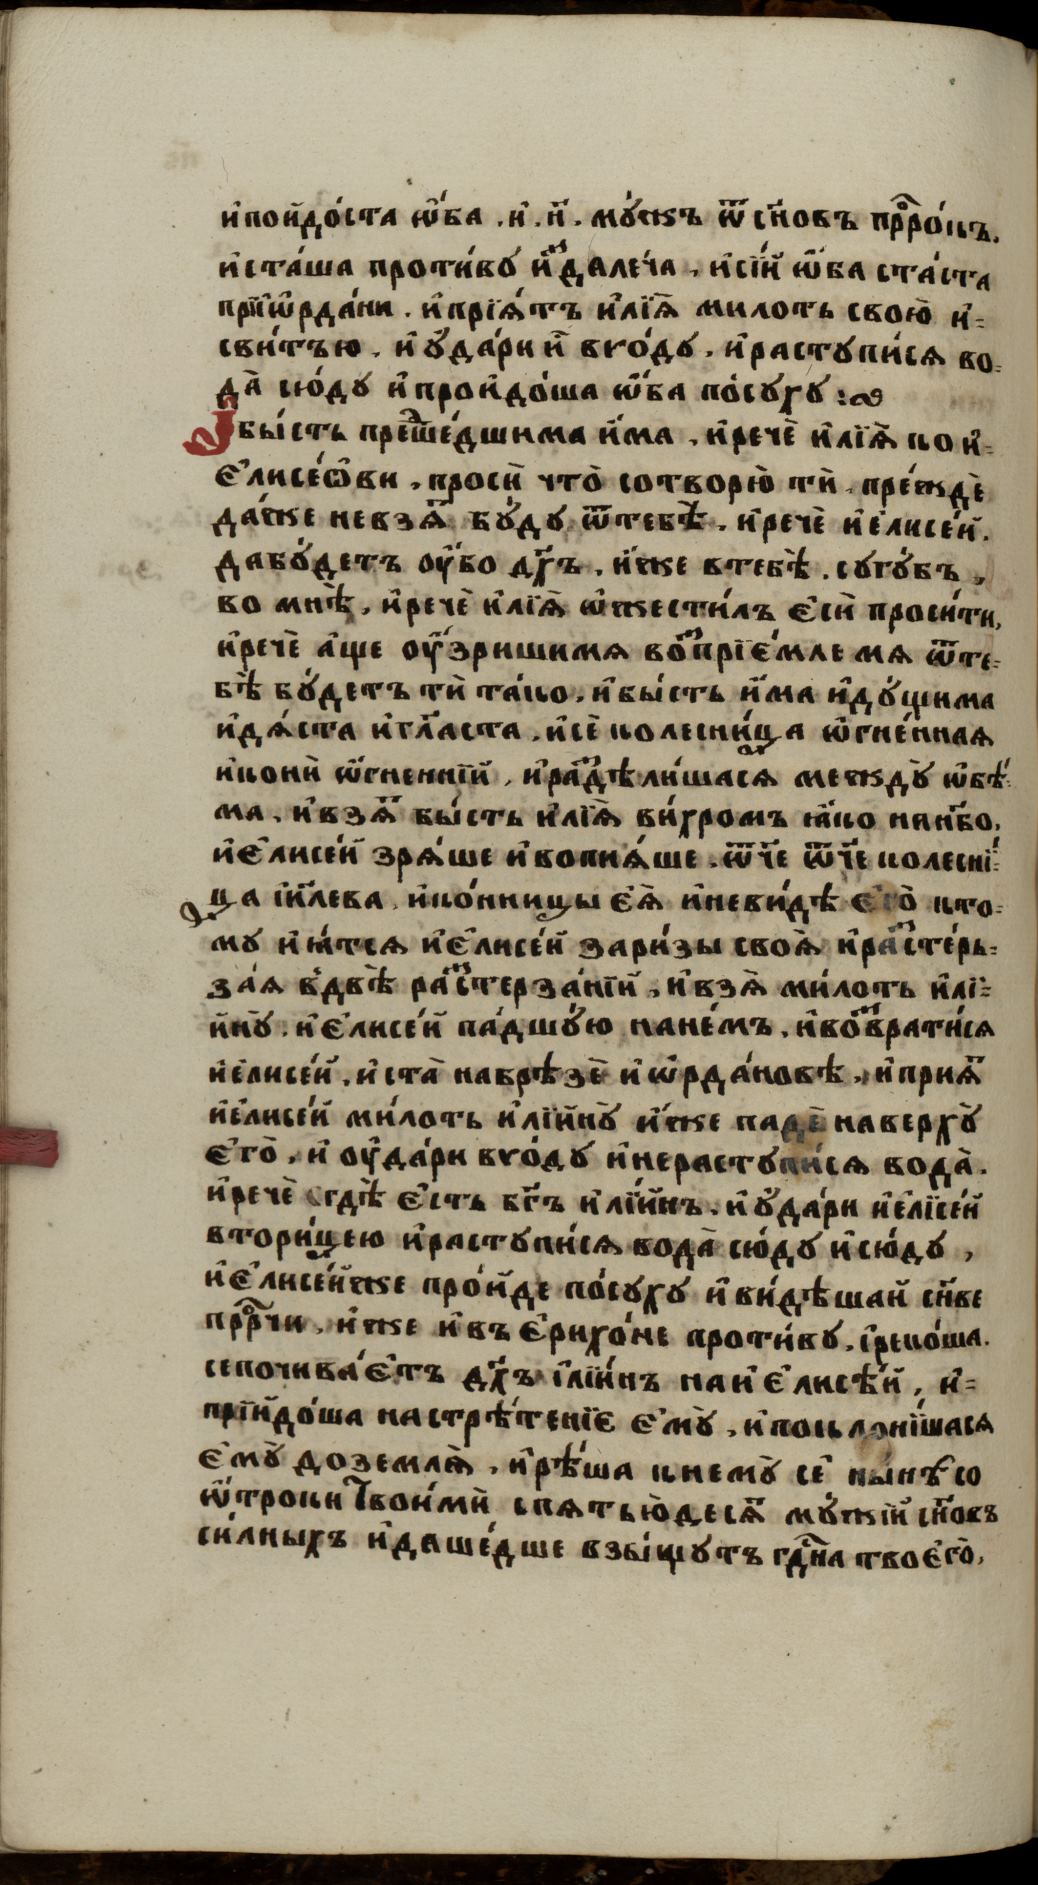 и҆поидо́ста ѡ҆́ба . и҆ . н҃ . мꙋ́жъ ѿ сн҃овъ прⷪ҇ро́къ.
и҆ста́ша проти́вꙋ и҆ⷨ далеча , и҆сі́и ѡ҆́ба ста́ста
прїі҆ѡ҆рда́ни . и҆прїѧ́тъ и҆лїѧ̀ милоть свою̀ и҆=
сви́тъю . и҆ ꙋ҆да́ри и҆́ в꙾во́дꙋ . и҆растꙋпи́сѧ во=
да̀ сю́дꙋ и҆проидо́ша ѡ҆́ба по́сꙋхꙋ :
И҆ бы́сть преше́дшима и҆́ма , и҆речѐ и҆лїѧ̀ ко и҆=
є҆лисе́ѡви , проси̏ что̀ сотворю̀ ти̏ . пре́ждѐ
да́же невзѧ́ⷮ бꙋ́дꙋ ѿтебѣ̀ . и҆речѐ и҆є҆лисе́й .
дабꙋ́детъ ᲂу҆́бо дх҃ъ . и҆́же втебѣ̀ . сꙋгꙋ́бъ ,
во мнѣ̀ , и҆речѐ и҆лїѧ̀ ѡ҆жести́лъ є҆сѝ проси́ти,
и҆речѐ а҆́ще ᲂу҆́зришимѧ во́ⷥпрїе́млемѧ ѿте=
бѣ̀ бꙋ́детъ ти̏ та́ко , и҆бы́сть и҆́ма и҆дꙋ́щима
и҆дѧ́ста и҆гл҃аста . и҆сѐ колесни́ца ѡ҆гне́ннаѧ
и҆кони̏ ѡ҆́гненнїй , и҆ра́ⷥдѣли́шасѧ междꙋ̀ ѡ҆бѣ́=
ма . и҆взѧ́ⷮ бы́сть и҆лїѧ̀ ви́хромъ ꙗ҆́ко нанб҃о,
и҆є҆лисе́й зрѧ́ше и҆вопиѧ́ше . ѿч҃е ѿч҃е колесни́=
ца і҆и҃лева . и҆ко́нницы є҆ѧ̀ и҆неви́дѣ є҆го̀ кто=
мꙋ и҆ ꙗ҆́тсѧ и҆є҆лисе́й зари́зы своѧ̀ и҆ра́ⷥсте́рь=
за́ѧ в꙾двѣ̀ ра́ⷥстерза́нїй , и҆взѧ̀ ми́лоть и҆лї=
и҆нꙋ̀ . и҆є҆лисе́й па́дшꙋ́ю нане́мъ . и҆во́ⷥврати́сѧ
и҆є҆лисе́й , и҆ста̀ набрѣзѐ и҆ѡ҆рда́новѣ , и҆приѧ́ⷮ
и҆є҆лисе́й ми́лоть и҆лїйнꙋ̀ и҆́же падѐ наверхꙋ̀
є҆го̀ , и҆ ᲂу҆да́ри в꙾во́дꙋ и҆нерастꙋпи́сѧ вода̀ .
и҆речѐ гдѣ̀ є҆́сть бг҃ъ и҆лїи́нъ , и҆ ꙋ҆да́ри и҆є҆лїсе́й
втори́цею и҆растꙋпи́сѧ вода̀ сю́дꙋ и҆сю́дꙋ ,
и҆є҆лисе́йже про́йде по́сꙋхꙋ и҆ви́дѣшай сн҃ве
прⷪ҇рчи , и҆́же и҆въ є҆рихо́не проти́вꙋ . і҆реко́ша .
сепочива́є҆тъ дх҃ъ і҆лїи́нъ наи҆є҆лисѣ́й , и҆=
прїйдо́ша настрѣ́тенїє є҆мꙋ̀ , и҆поклони́шасѧ
є҆мꙋ̀ доземлѧ̀ , и҆рѣ́ша кнемꙋ̀ сѐ ны́нѣ со
ѡ҆́троки твои́ми̏ спѧтьюдесѧ́ⷮ мꙋ́жїй сн҃овъ
си́лныхъ и҆даше́дше взы́щꙋтъ гдⷭ҇на твоє҆го̀,